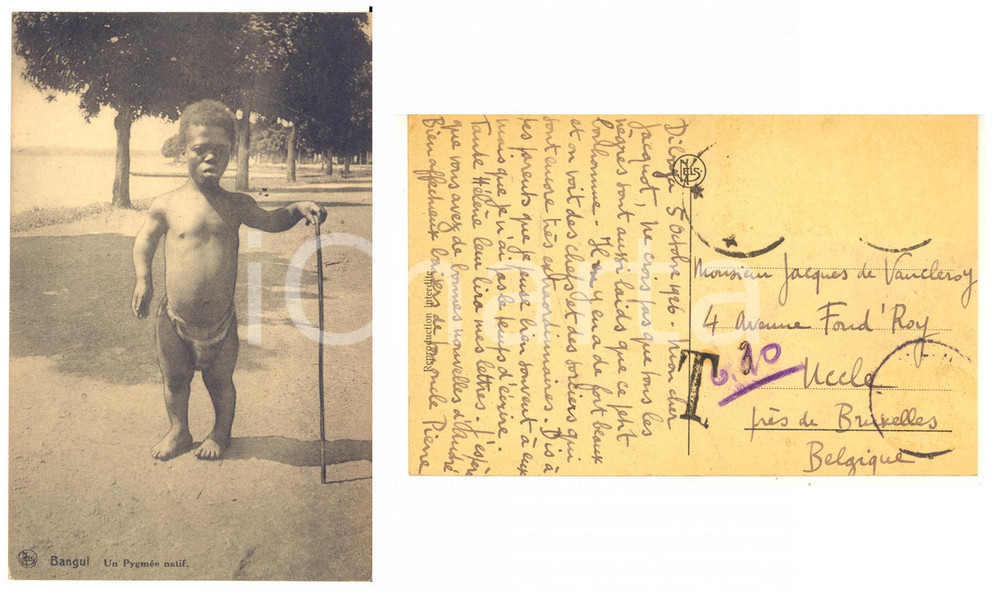 Bangui Un Pygmée natif.
NELS
icharta
Reproduction interdite
5 octobre 1926. Mon cher
Jacquot, ne crois pas que tous les
nègres sont aussi laids que ce petit
bonhomme - Il y en a de fort beaux
et on voit des chefs et des sorciers qui
sont encore très extraordinaires. Dis à
tes parents que je pense bien souvent à eux
mais que je n'ai pas le temps d'écrire.
Tante Hélène leur lira mes lettres. J'espère
que vous avez de bonnes nouvelles d'André
Bien affectueux baisers de l'oncle Pierre
Monsieur Jacques de Vaucleroy
4 avenue Fond'Roy
T
0.20
Uccle
près de Bruxelles
Belgique